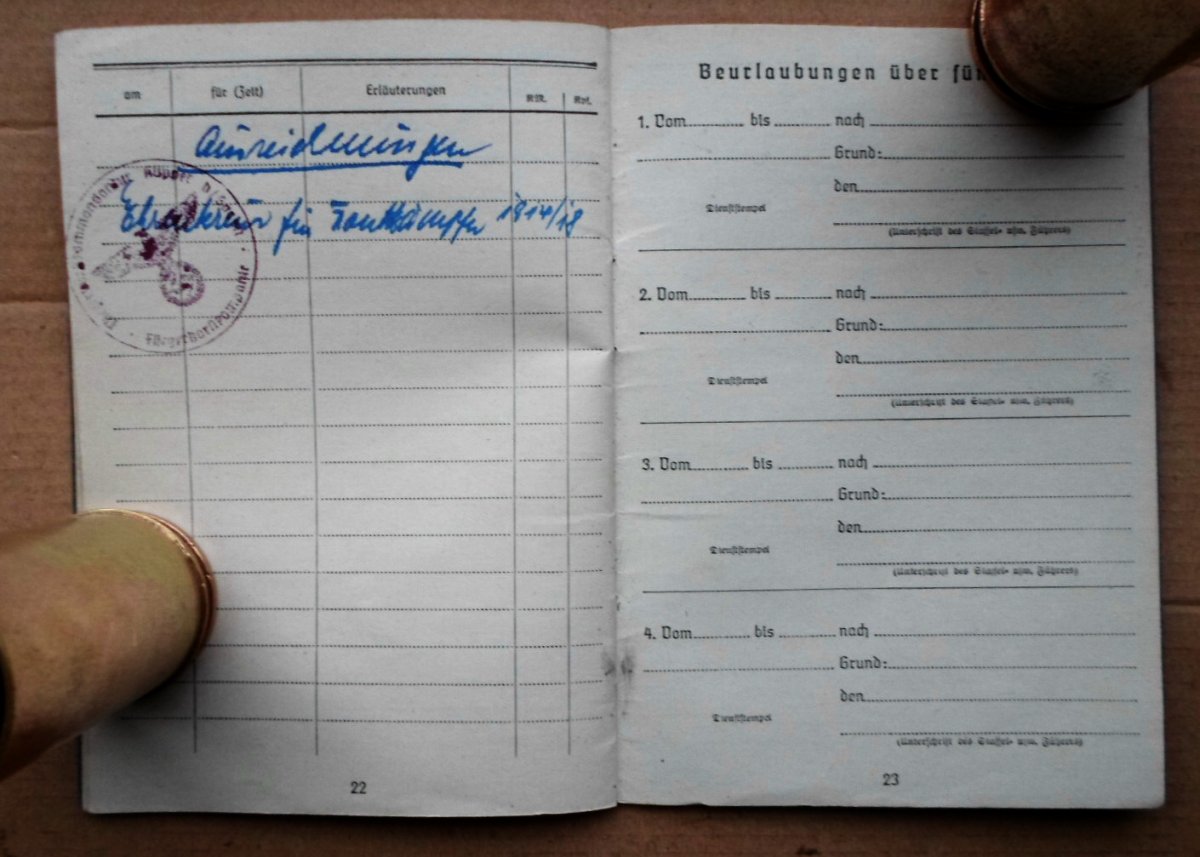 am für (Zeit) Erläuterungen
Auszeichnungen
Ehrenkreuz für Frontkämpfer 1914/18
22
Beurlaubungen über fün
1. Vom bis nach
Grund:
den
Dienststempel
(Unterschrift des Staffel- usw. Führers)
2. Vom bis nach
Grund:
den
Dienststempel
(Unterschrift des Staffel- usw. Führers)
3. Vom bis nach
Grund:
den
Dienststempel
(Unterschrift des Staffel- usw. Führers)
4. Vom bis nach
Grund:
den
Dienststempel
(Unterschrift des Staffel- usw. Führers)
23